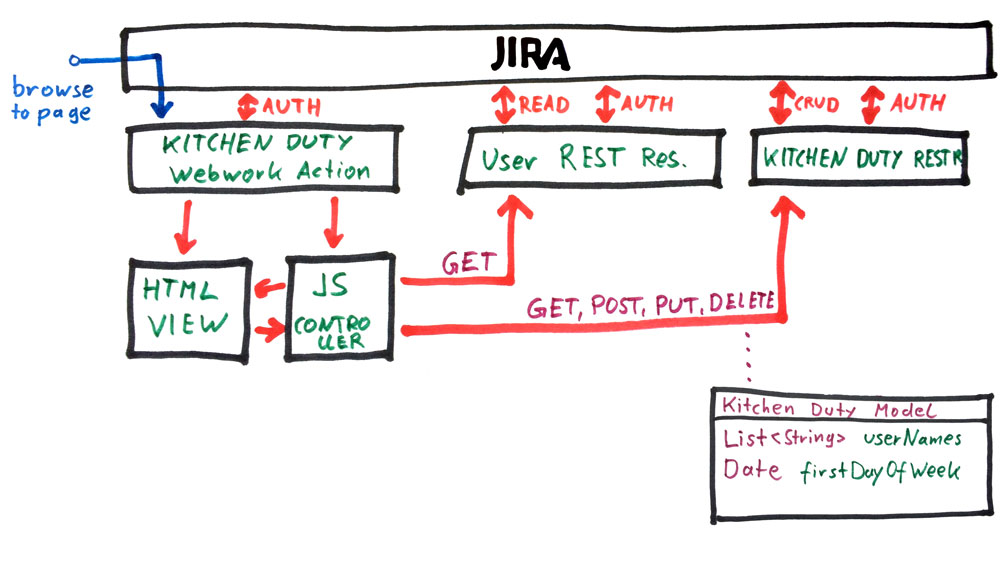 JIRA
browse
to page
AUTH
READ
AUTH
CRUD
AUTH
KITCHEN DUTY
Webwork Action
User REST Res.
KITCHEN DUTY REST R
HTML
VIEW
JS
CONTRO
LLER
GET
GET, POST, PUT, DELETE
Kitchen Duty Model
List<String> userNames
Date firstDayOfWeek